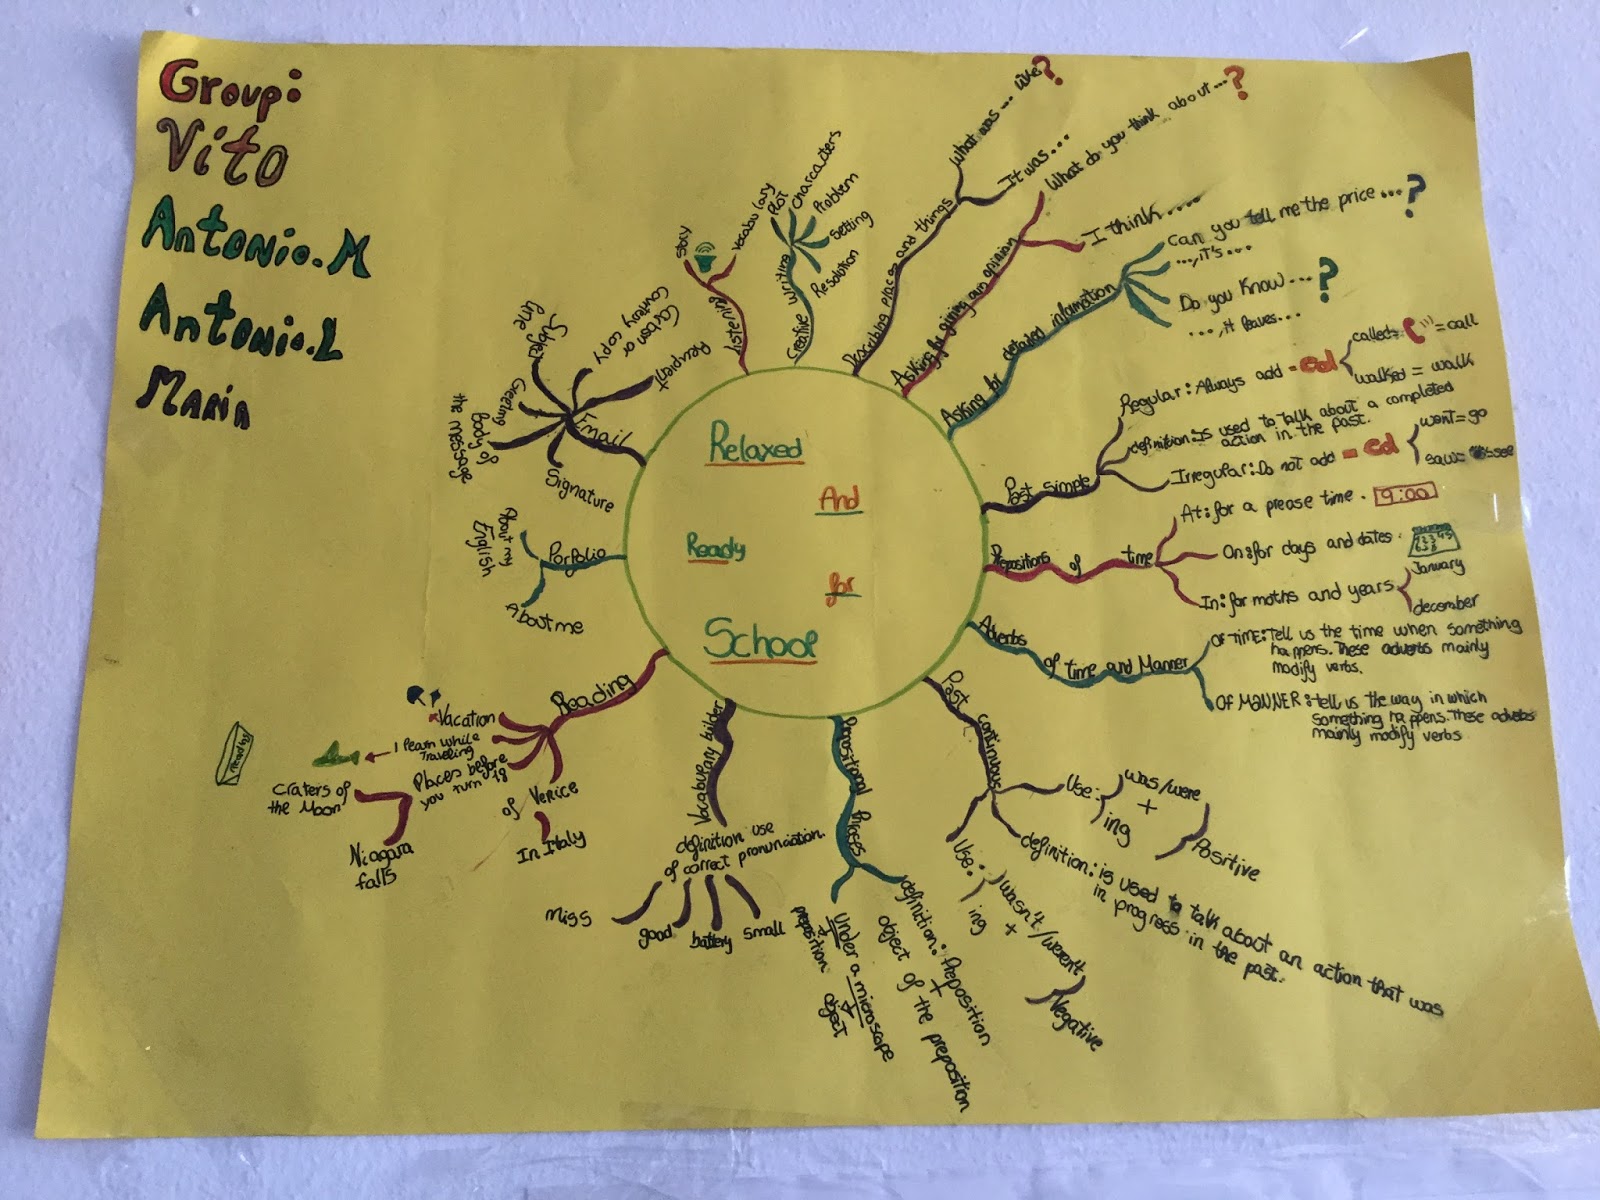 Group:
Vito
Antonio.M
Antonio.L
Maria
Relaxed
And
Ready
for
School
Listening
Story
Vocabulary
Creative writing
Plot
Characters
Problem
Setting
Resolution
Describing places and things
What was... like?
It was...
Asking for giving an opinion
What do you think about...?
I think....
Asking for detailed information
Can you tell me the price...?
..., it's...
Do you know...?
..., it leaves...
Past simple
Regular: Always add - ed
called = call
walked = walk
definition: is used to talk about a completed
action in the past.
Irregular: Do not add - ed
went = go
saw = see
Prepositions of time
At: for a prease time.
9:00
On: for days and dates.
In: for moths and years
January
december
Adverbs
of time and Manner
OF TIME: Tell us the time when something
happens. These adverbs mainly
modify verbs.
OF MANNER: tell us the way in which
something happens. These adverbs
mainly modify verbs
Past continuous
Use:
was/were
+
ing
Positive
definition: is used to talk about an action that was
in progress in the past.
Use:
wasn't/weren't
+
ing
Negative
definition: Preposition
+
object of the preposition
Under a microscope
preposition
object
Vocabulary builder
definition use
of correct pronunciation.
Miss
good
battery
small
Reading
Vacation
I learn while
Traveling
Places before
you turn 18
Craters of
the Moon
Niagara
falls
of Venice
In Italy
Porfolio
About my
English
About me
Email
Subject
line
Greeting
Body of
the message
Signature
Carbon or
Courtesy copy
Recipient